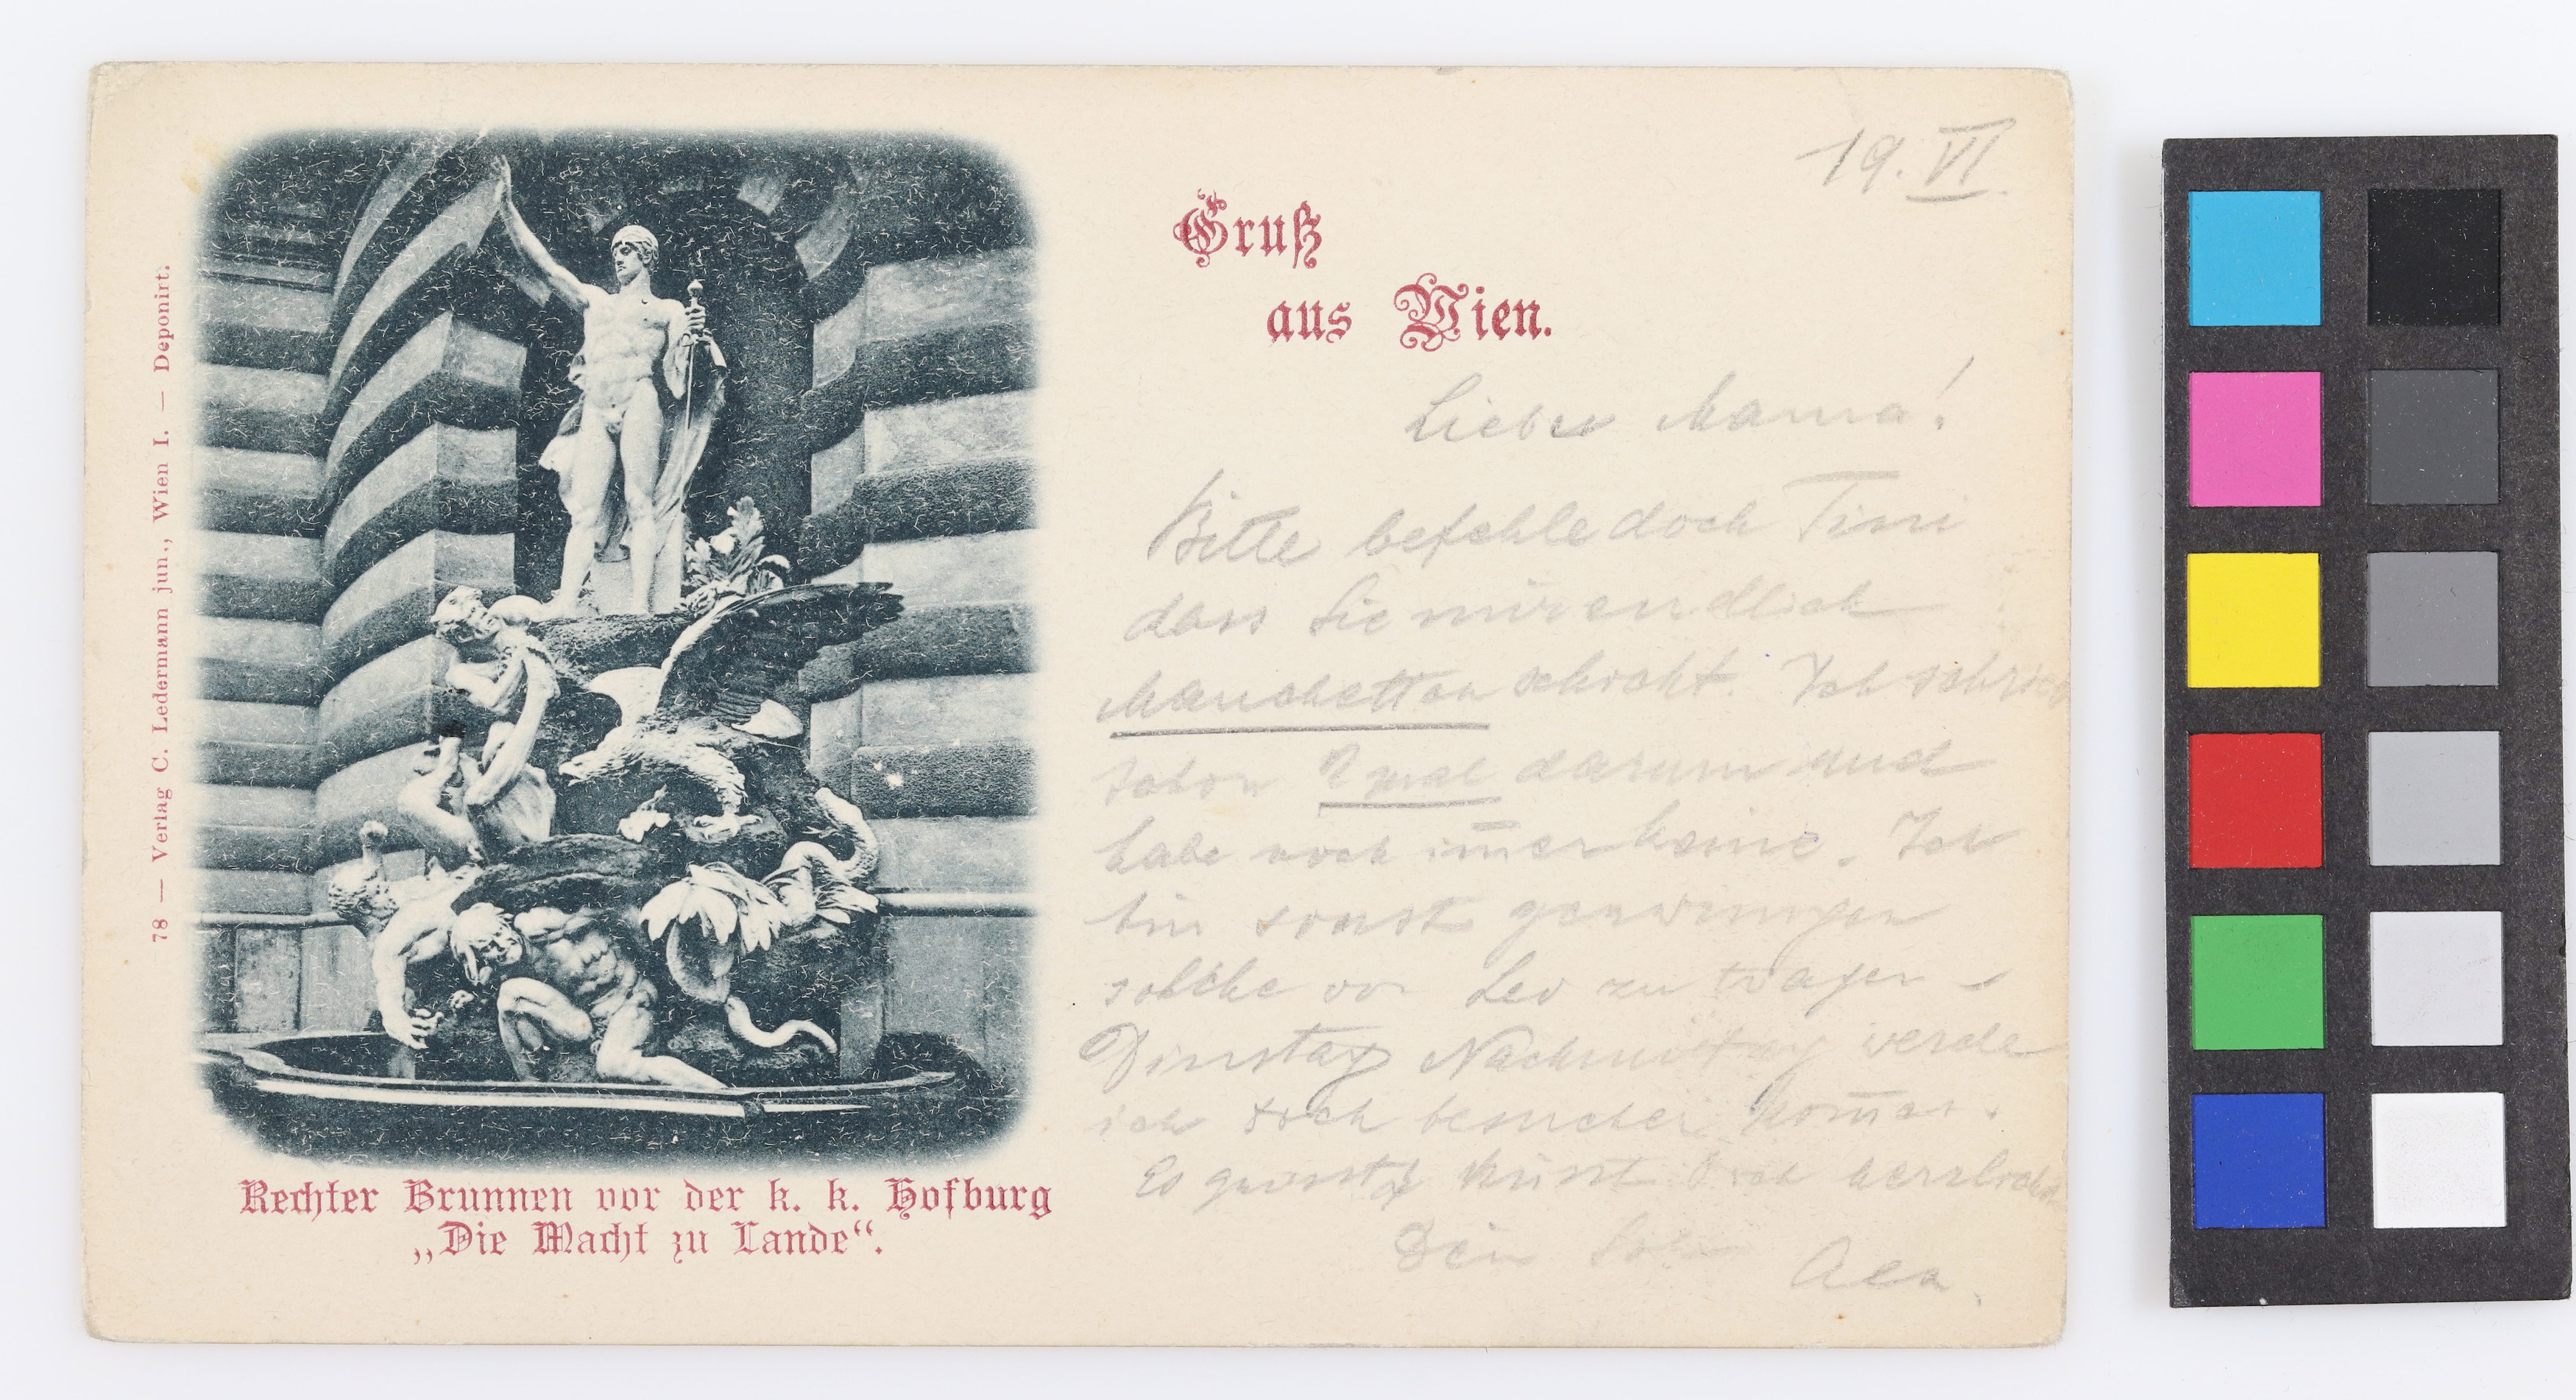 78 — Verlag C. Ledermann jun., Wien I. — Deponirt.
19. VI.
Gruß
aus Wien.
Liebe Mama!
Bitte befehle doch Tini
dass Sie mir endlich
Manchetten schickt. Ich schrieb
schon 2 mal darum und
habe noch im̅er keine. Ich
bin sonst gezwungen
solche von Leo zu tragen
Dinstag Nachmittag werde
ich Dich besuchen kom̅en.
Es grüsst & küsst Dich herzlichst
Dein
Rechter Brunnen vor der k. k. Hofburg
„Die Macht zu Lande“.